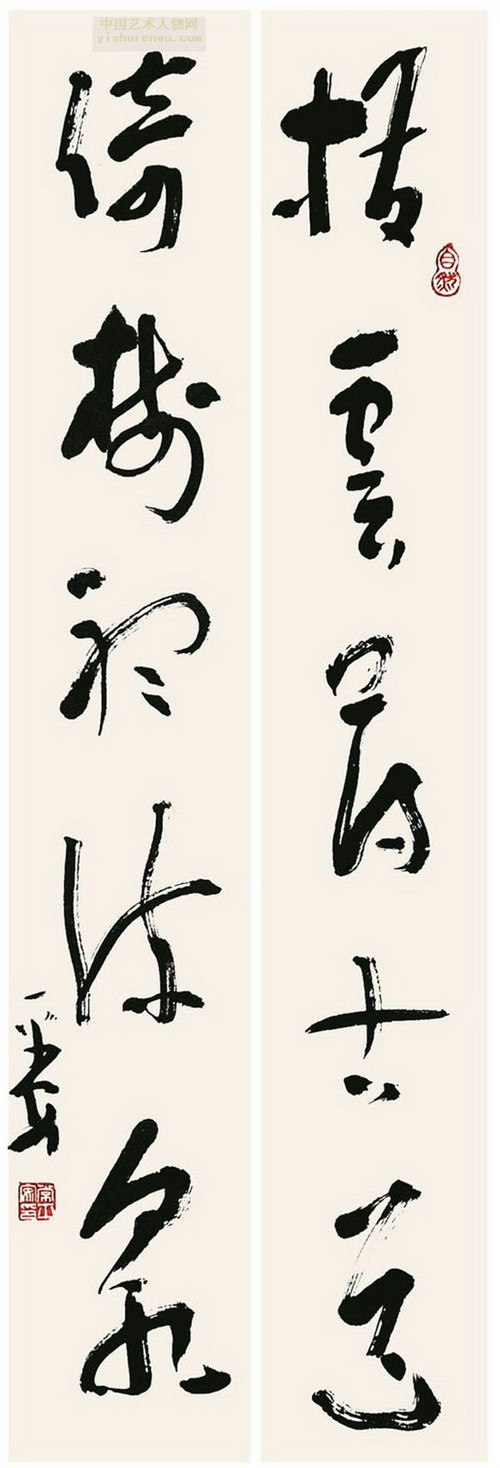 中国艺术人物网
yishurenwu.com
撥雲尋古道
自然
倚樹聽流泉